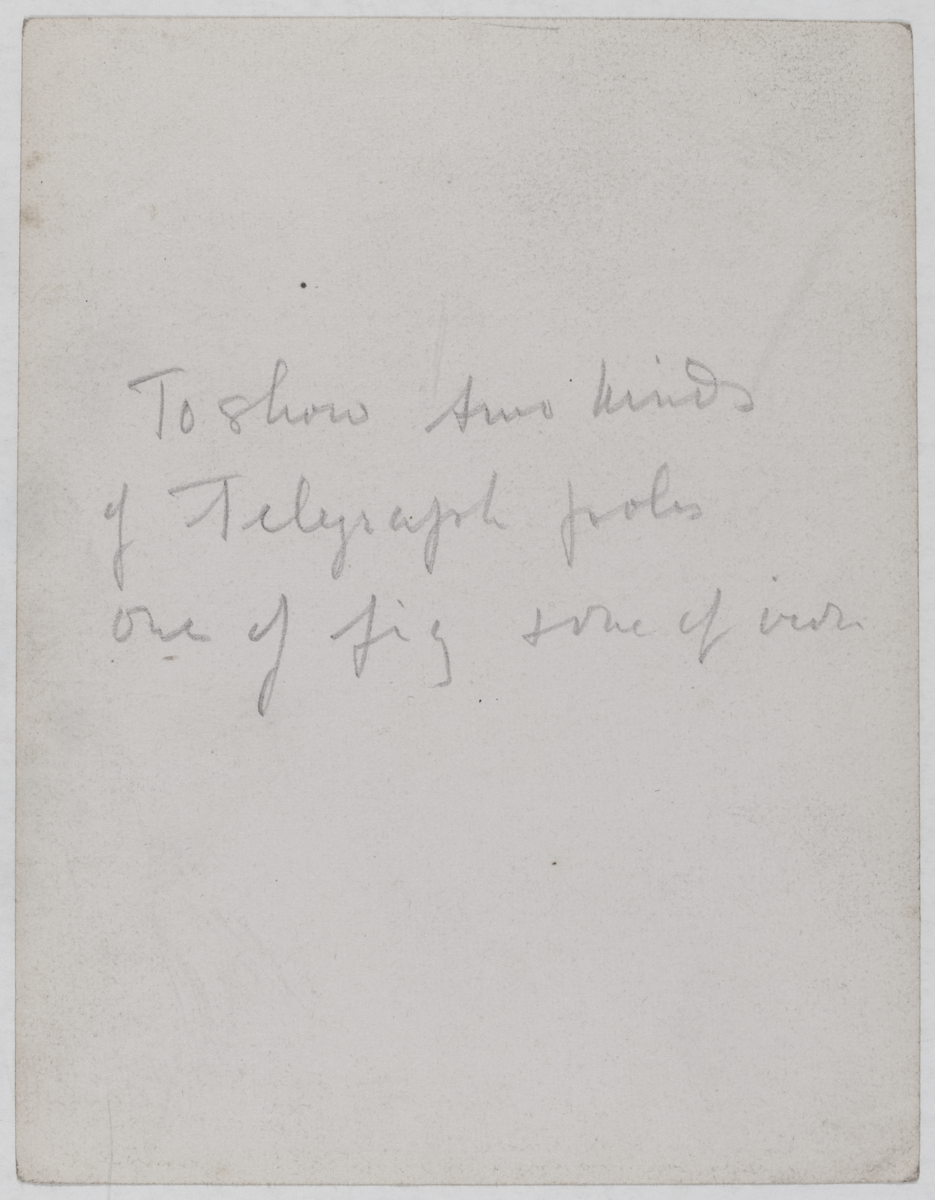 To show two kinds
of Telegraph poles
one of fig & one of iron